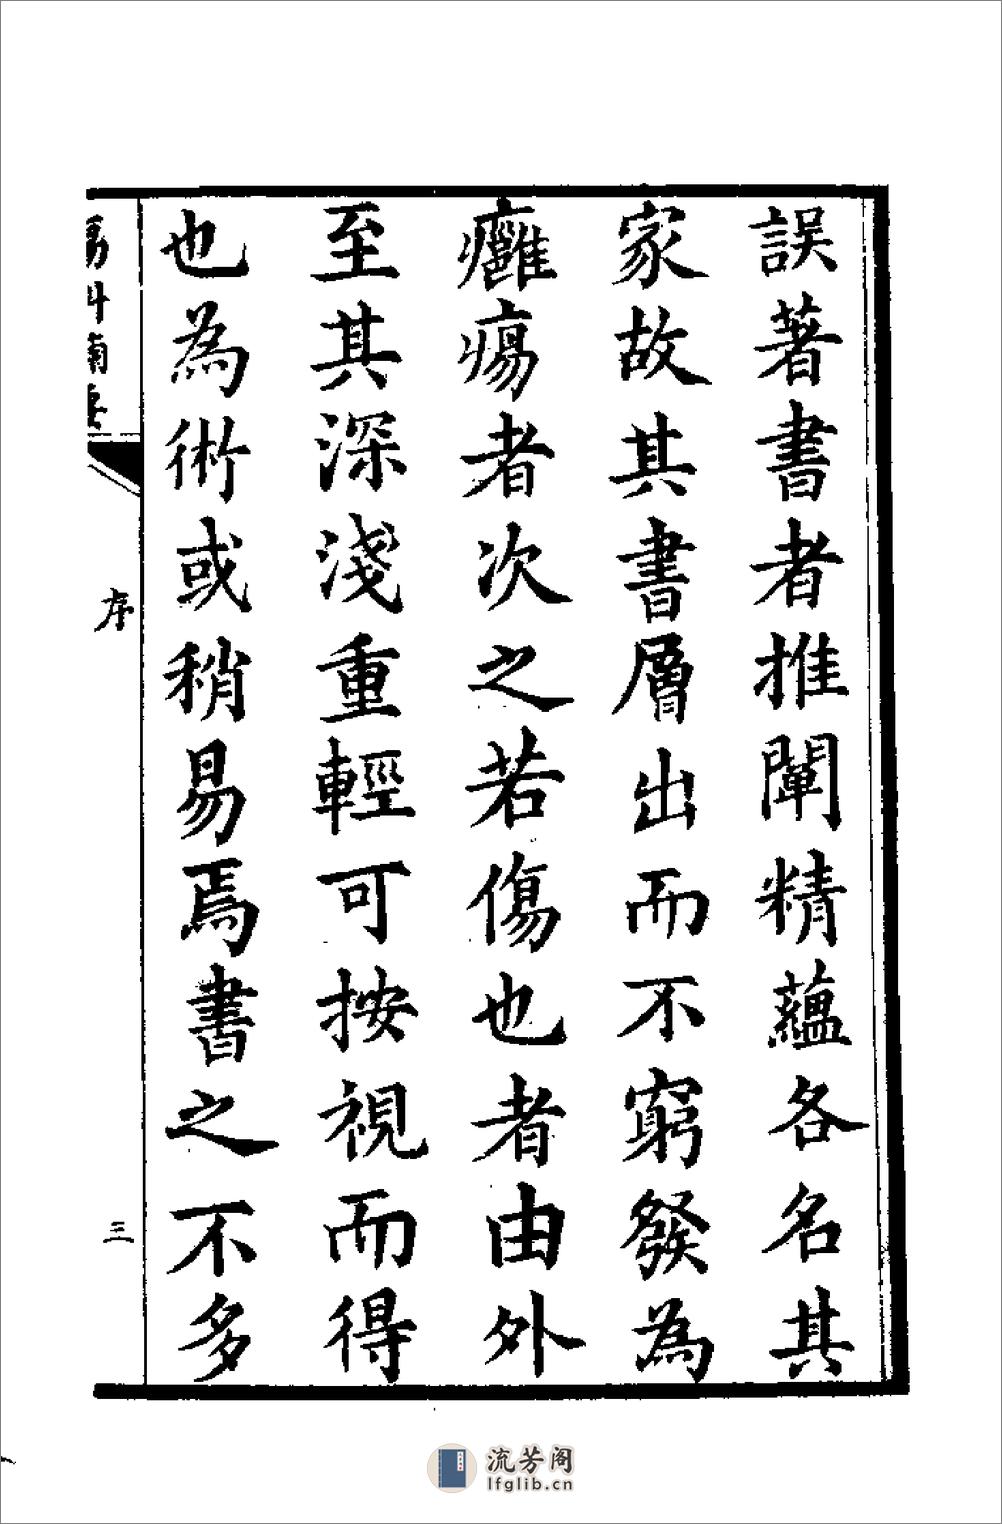 誤著書者推闡精蘊各名其
家故其書層出而不窮發為
癰瘍者次之若傷也者由外
至其深淺重輕可按視而得
也為術或稍易焉書之不多
序
三
流芳阁
lfglib.cn